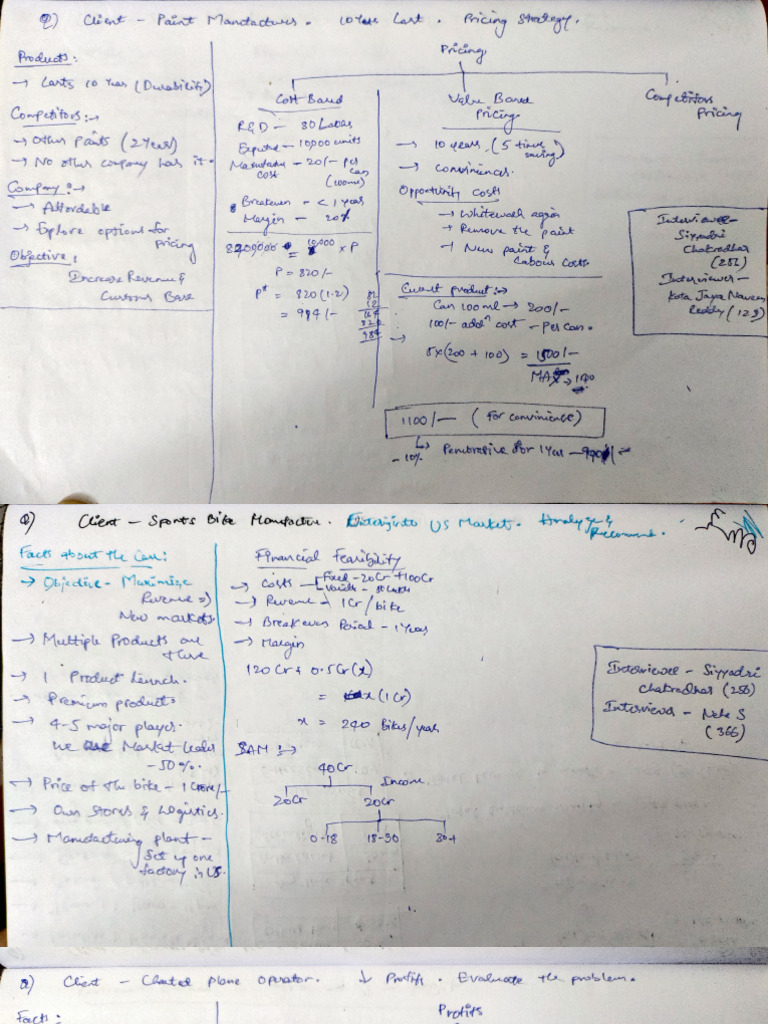 Q) Client - Paint Manufactures. 10 Year Last. Pricing Strategy.
Products:
→ Lasts 10 Year (Durability)
Competitors:→
→ Other Paints (2 Year)
→ No other company has it.
Company:→
→ Affordable
→ Explore options for
pricing
Objective:
Increase Revenue &
Customer Base
Pricing
Cost Based
R&D - 80 Lakhs
Expected - 10,000 units
Manufactur - 20/- per
cost can
(100ml)
Breakeven - < 1 year
Margin - 20%
8200000 = 10,000 x P
P = 820/-
P* = 820(1.2)
= 984/-
82
12
164
820
984
Value Based
Pricing
→ 10 years. (5 times
saving)
→ Conviniences.
Opportunity Costs
→ Whitewash again
→ Remove the paint
→ New paint &
Labour Costs
Current product:→
Can 100ml → 200/-
100/- addn cost - Per can.
→ 5x(200 + 100) = 1500/-
MAX
1100/- (For conviniense)
-10% Penetrative for 1 Year - 990/-
Competitors
Pricing
Interviewee -
Siyyadri
Chakradhar
(256)
Interviewer -
Kota Jaya Naveen
Reddy (129)
Q) Client - Sports Bike Manufacture. Entering into US Market. Analyze &
Recommend.
Facts about the Case:
→ Objective - Maximize
Revenue ⇒)
New markets
→ Multiple Products are
there
→ 1 Product Launch.
→ Premium products
→ 4-5 major player.
we are Market leader
- 50%.
→ Price of the bike - 1 Crore/-
→ Own Stores & Logistics.
→ Manufacturing plant -
Set up one
factory in US.
Financial Feasibility
→ Costs - Fixed - 20Cr + 100Cr
Variable - 50 Lakhs
→ Revenue - 1Cr/bike
→ Break even Period - 1 Year
→ Margin
120Cr + 0.5Cr(x)
= x(1Cr)
x = 240 Bikes/year
SAM:→
40Cr
20Cr 20Cr Income
0-18 18-30 30+
Interviewee - Siyyadri
Chakradhar (256)
Interviewer - Neha S
(366)
Q) Client - Charted plane operator. ↓ Profits. Evaluate the problem.
Facts:
Profits